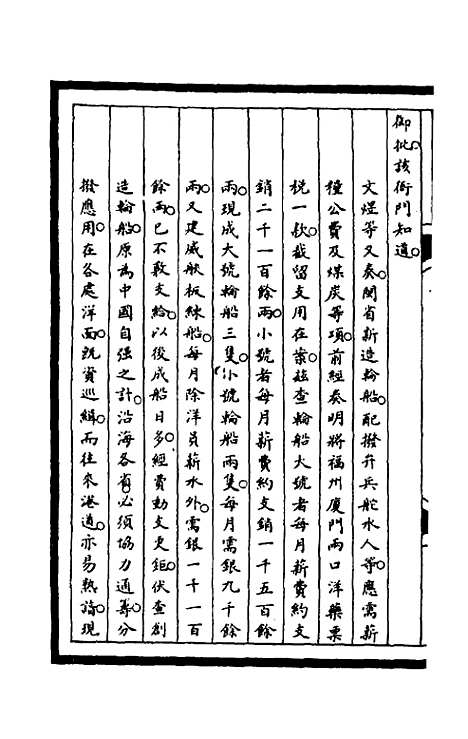 御批該衙門知道。
文煜等又奏。閩省新造輪船。配撥弁兵舵水人等。應需薪
糧公費及煤炭等項。前經奏明將福州廈門兩口洋藥票
稅一款。截留支用在案。茲查輪船大號者每月薪費約支
銷二千一百餘兩。小號者每月薪費約支銷一千五百餘
兩。現成大號輪船三隻。小號輪船兩隻。每月需銀九千餘
兩。又建威舣板練船。每月除洋員薪水外。需銀一千一百
餘兩。已不敷支給。以後成船日多。經費動支更鉅。伏查創
造輪船。原為中國自強之計。沿海各省。必須協力通籌。分
撥應用。在各處洋面。既資巡緝。而往來港道。亦易熟諳。現